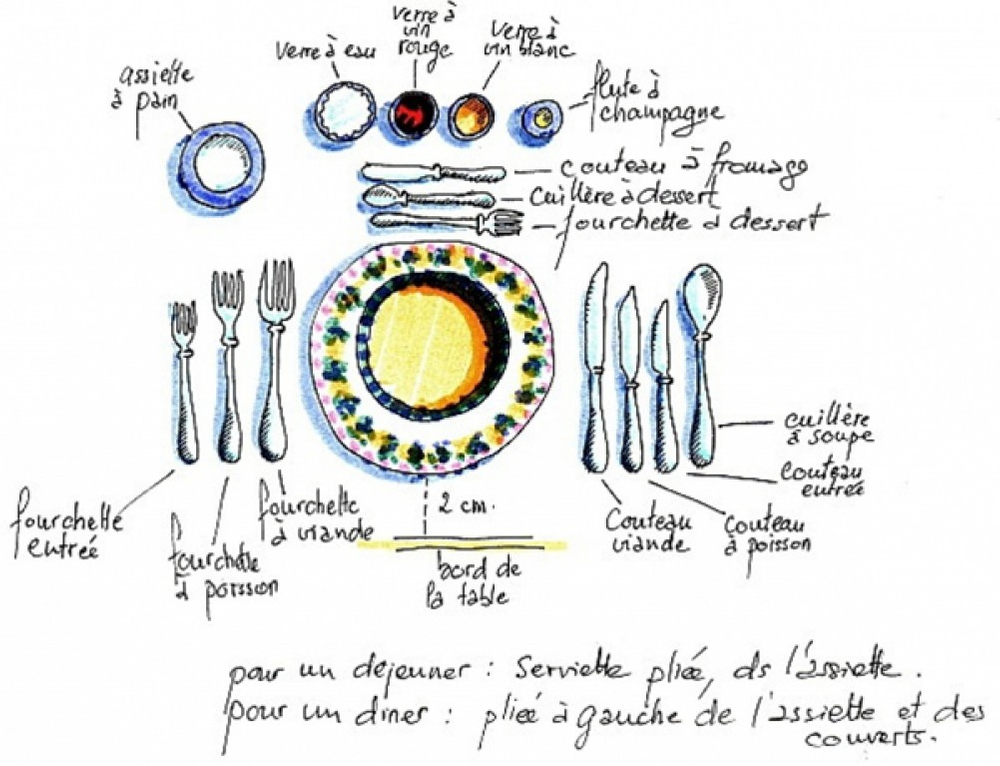 verre à
vin
rouge
verre à
vin blanc
verre à eau
assiette
à pain
flute à
champagne
couteau à fromage
cuillère à dessert
fourchette à dessert
cuillère
à soupe
couteau
entrée
fourchette
entrée
fourchette
à poisson
fourchette
à viande
2 cm.
Couteau
viande
couteau
à poisson
bord de
la table
pour un déjeuner : Serviette pliée, ds l'assiette.
pour un diner : pliée à gauche de l'assiette et des
couverts.